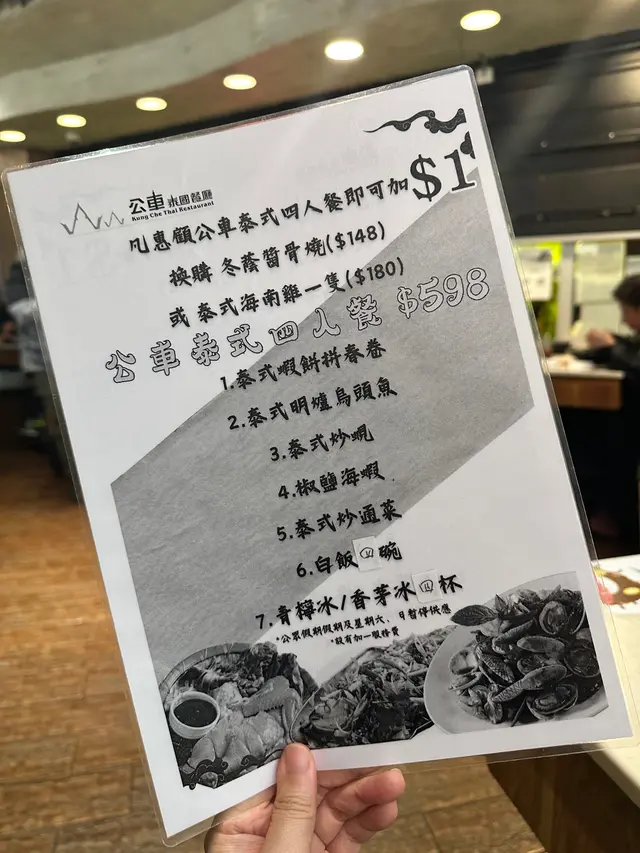 公車 泰國餐廳
Kung Che Thai Restaurant
凡惠顧公車泰式四人餐即可加$1
換購 冬蔭醬骨燒($148)
或 泰式海南雞一隻($180)
公車泰式四人餐 $598
1.泰式蝦餅拼春卷
2.泰式明爐烏頭魚
3.泰式炒蜆
4.椒鹽海蝦
5.泰式炒通菜
6.白飯四碗
7.青檸冰/香茅冰四杯
*公眾假期假期及星期六、日暫停供應
*設有加一服務費